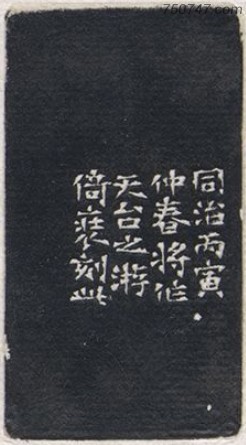 750747.com
同治丙寅
仲春將作
天台之游
倚裝刻此